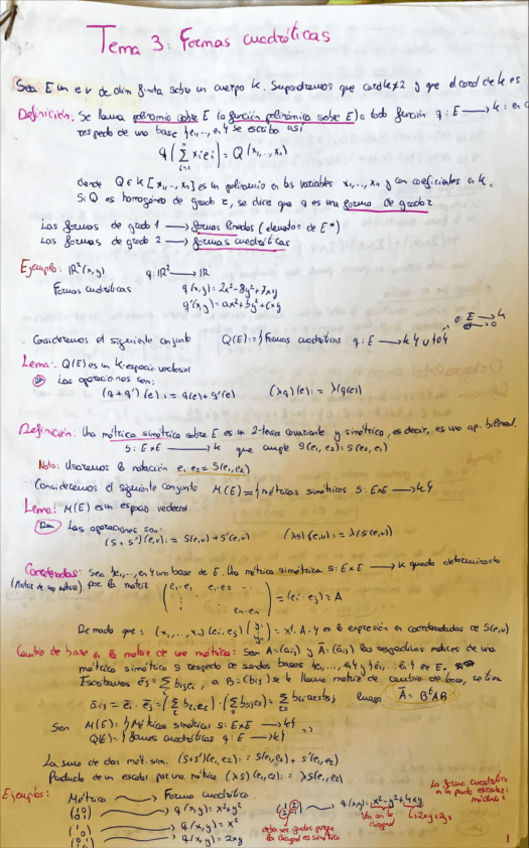 Tema 3: Formas cuadráticas
Sea E un e.v de dim finita sobre un cuerpo k. Supondremos que car k≠2 y que el card de k es
Definición: Se llama polinomio sobre E (o función polinómica sobre E) a toda función q: E → k
respecto de una base {e₁,...,eₙ} se escribe así
q(∑ xᵢeᵢ) = Q(x₁,...,xₙ)
donde Q∈k[x₁,...,xₙ] es un polinomio en las variables x₁,...,xₙ y con coeficientes en k.
Si Q es homogéneo de grado r, se dice que q es una forma de grado r
Las formas de grado 1 → formas lineales (elementos de E*)
Las formas de grado 2 → formas cuadráticas
Ejemplo: ℝ²(x,y) q: ℝ² → ℝ
Formas cuadráticas q(x,y)=2x²-8y²+7xy
q'(x,y)=ax²+by²+cxy
Consideremos el siguiente conjunto Q(E):={Formas cuadráticas q: E → k} ∪ {0}
Lema: Q(E) es un k-espacio vectorial
Las operaciones son:
(q+q')(e):= q(e)+q'(e) (λq)(e):= λ(q(e))
Definición: Una métrica simétrica sobre E es un 2-tensor covariante y simétrico, es decir, es una ap. bilineal.
S: E×E → k que cumple S(e₁,e₂)=S(e₂,e₁)
Nota: Usaremos la notación e₁·e₂=S(e₁,e₂)
Consideremos el siguiente conjunto M(E)={métricas simétricas S: E×E → k}
Lema: M(E) es un espacio vectorial
Dem Las operaciones son:
(S+S')(e,v)=S(e,v)+S'(e,v) (λS)(e,v):=λ(S(e,v))
Coordenadas: Sea {e₁,...,eₙ} una base de E. Una métrica simétrica S: E×E → k queda determinada
(Matriz de una métrica) por la matriz (e₁·e₁ e₁·e₂ ... eₙ·eₙ) = (eᵢ·eⱼ) = A
De modo que: (x₁,...,xₙ)(eᵢ·eⱼ)(y₁ ⋮ yₙ) = xᵗ·A·y es la expresión en coordenadas de S(e,v)
Cambio de base en la matriz de una métrica: Sean A=(aᵢⱼ) y Ā=(āᵢⱼ) las respectivas matrices de una
métrica simétrica S respecto de sendas bases {e₁,...,eₙ} y {ē₁,...,ēₙ} en E.
Escribamos ēⱼ=∑bᵢⱼeᵢ, a B=(bᵢⱼ) se le llama matriz de cambio de base, se tiene
luego Ā=BᵗAB
Sean M(E)={Métricas simétricas S: E×E → k}
Q(E)={formas cuadráticas q: E → k} ⇒
La suma de dos mét. sim. (S+S')(e₁,e₂):=S(e₁,e₂)+S'(e₁,e₂)
Producto de un escalar por una métrica (λS)(e₁,e₂):=λS(e₁,e₂)
Ejemplos: Métrica Forma cuadrática
q(x,y)=x²+y²
q(x,y)=x²
q(x,y)=2xy
q(x,y)=x²-y²+4xy
Van en la diagonal
deben ser iguales porque
la diagonal es simétrica
La forma cuadrática